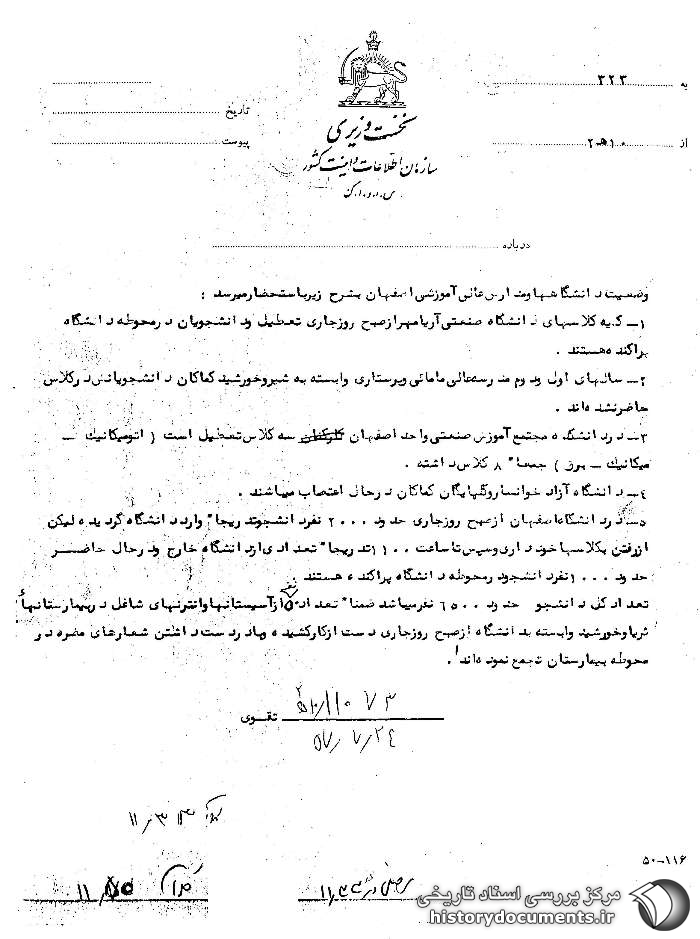 به ۳۲۳
تاریخ
نخست وزیری
از ۲۰ﻫ۱۰
پیوست
سازمان اطلاعات و امنیت کشور
س.ا.و.ا.ک
درباره
وضعیت دانشگاهها ومدارس عالی آموزشی اصفهان بشرح زیرباستحضارمیرسد :
۱ـ کلیه کلاسهای دانشگاه صنعتی آریامهرازصبح روزجاری تعطیل ودانشجویان درمحوطه دانشگاه
پراکنده هستند .
۲ـ سالهای اول ودوم مدرسه عالی مامائی وپرستاری وابسته به شیروخورشید کماکان دانشجویانش درکلاس
حاضرنشده اند .
۳ـ دردانشکده مجتمع آموزش صنعتی واحد اصفهان سه کلاس تعطیل است ( اتومکانیک ـ
میکانیک ـ برق ) جمعا" ۸ کلاس داشته .
٤ـ دانشگاه آزاد خوانساروگلپایگان کماکان درحال اعتصاب میباشند .
۵ـ دردانشگاه اصفهان ازصبح روزجاری حدود ۲۰۰۰ نفردانشجوتدریجا" وارد دانشگاه گردیده لیکن
ازرفتن بکلاسها خودداری وسپس تاساعت ۱۱۰۰ تدریجا" تعدادی ازدانشگاه خارج ودرحال حاضر
حدود ۱۰۰۰ نفردانشجودرمحوطه دانشگاه پراکنده هستند .
تعدادکل دانشجو حدود ٦۵۰۰ نفرمیباشد ضمنا" تعداد ۱۵۰ نفر ازآسیستانها وانترنهای شاغل دربیمارستانهای
ثریا وخورشید وابسته بدانشگاه ازصبح روزجاری دست ازکارکشیده وبادردست داشتن شعارهای مضره در
محوطه بیمارستان تجمع نموده اند .
۲ﻫ۱۰/۱۱۰۷۳
تقوی
۵۷/۷/۲٤
۱۱/۳۳
۵۰-۱۱۶
۱۱/۴۵
۱۱/۳۳
مرکز بررسی اسناد تاریخی
historydocuments.ir